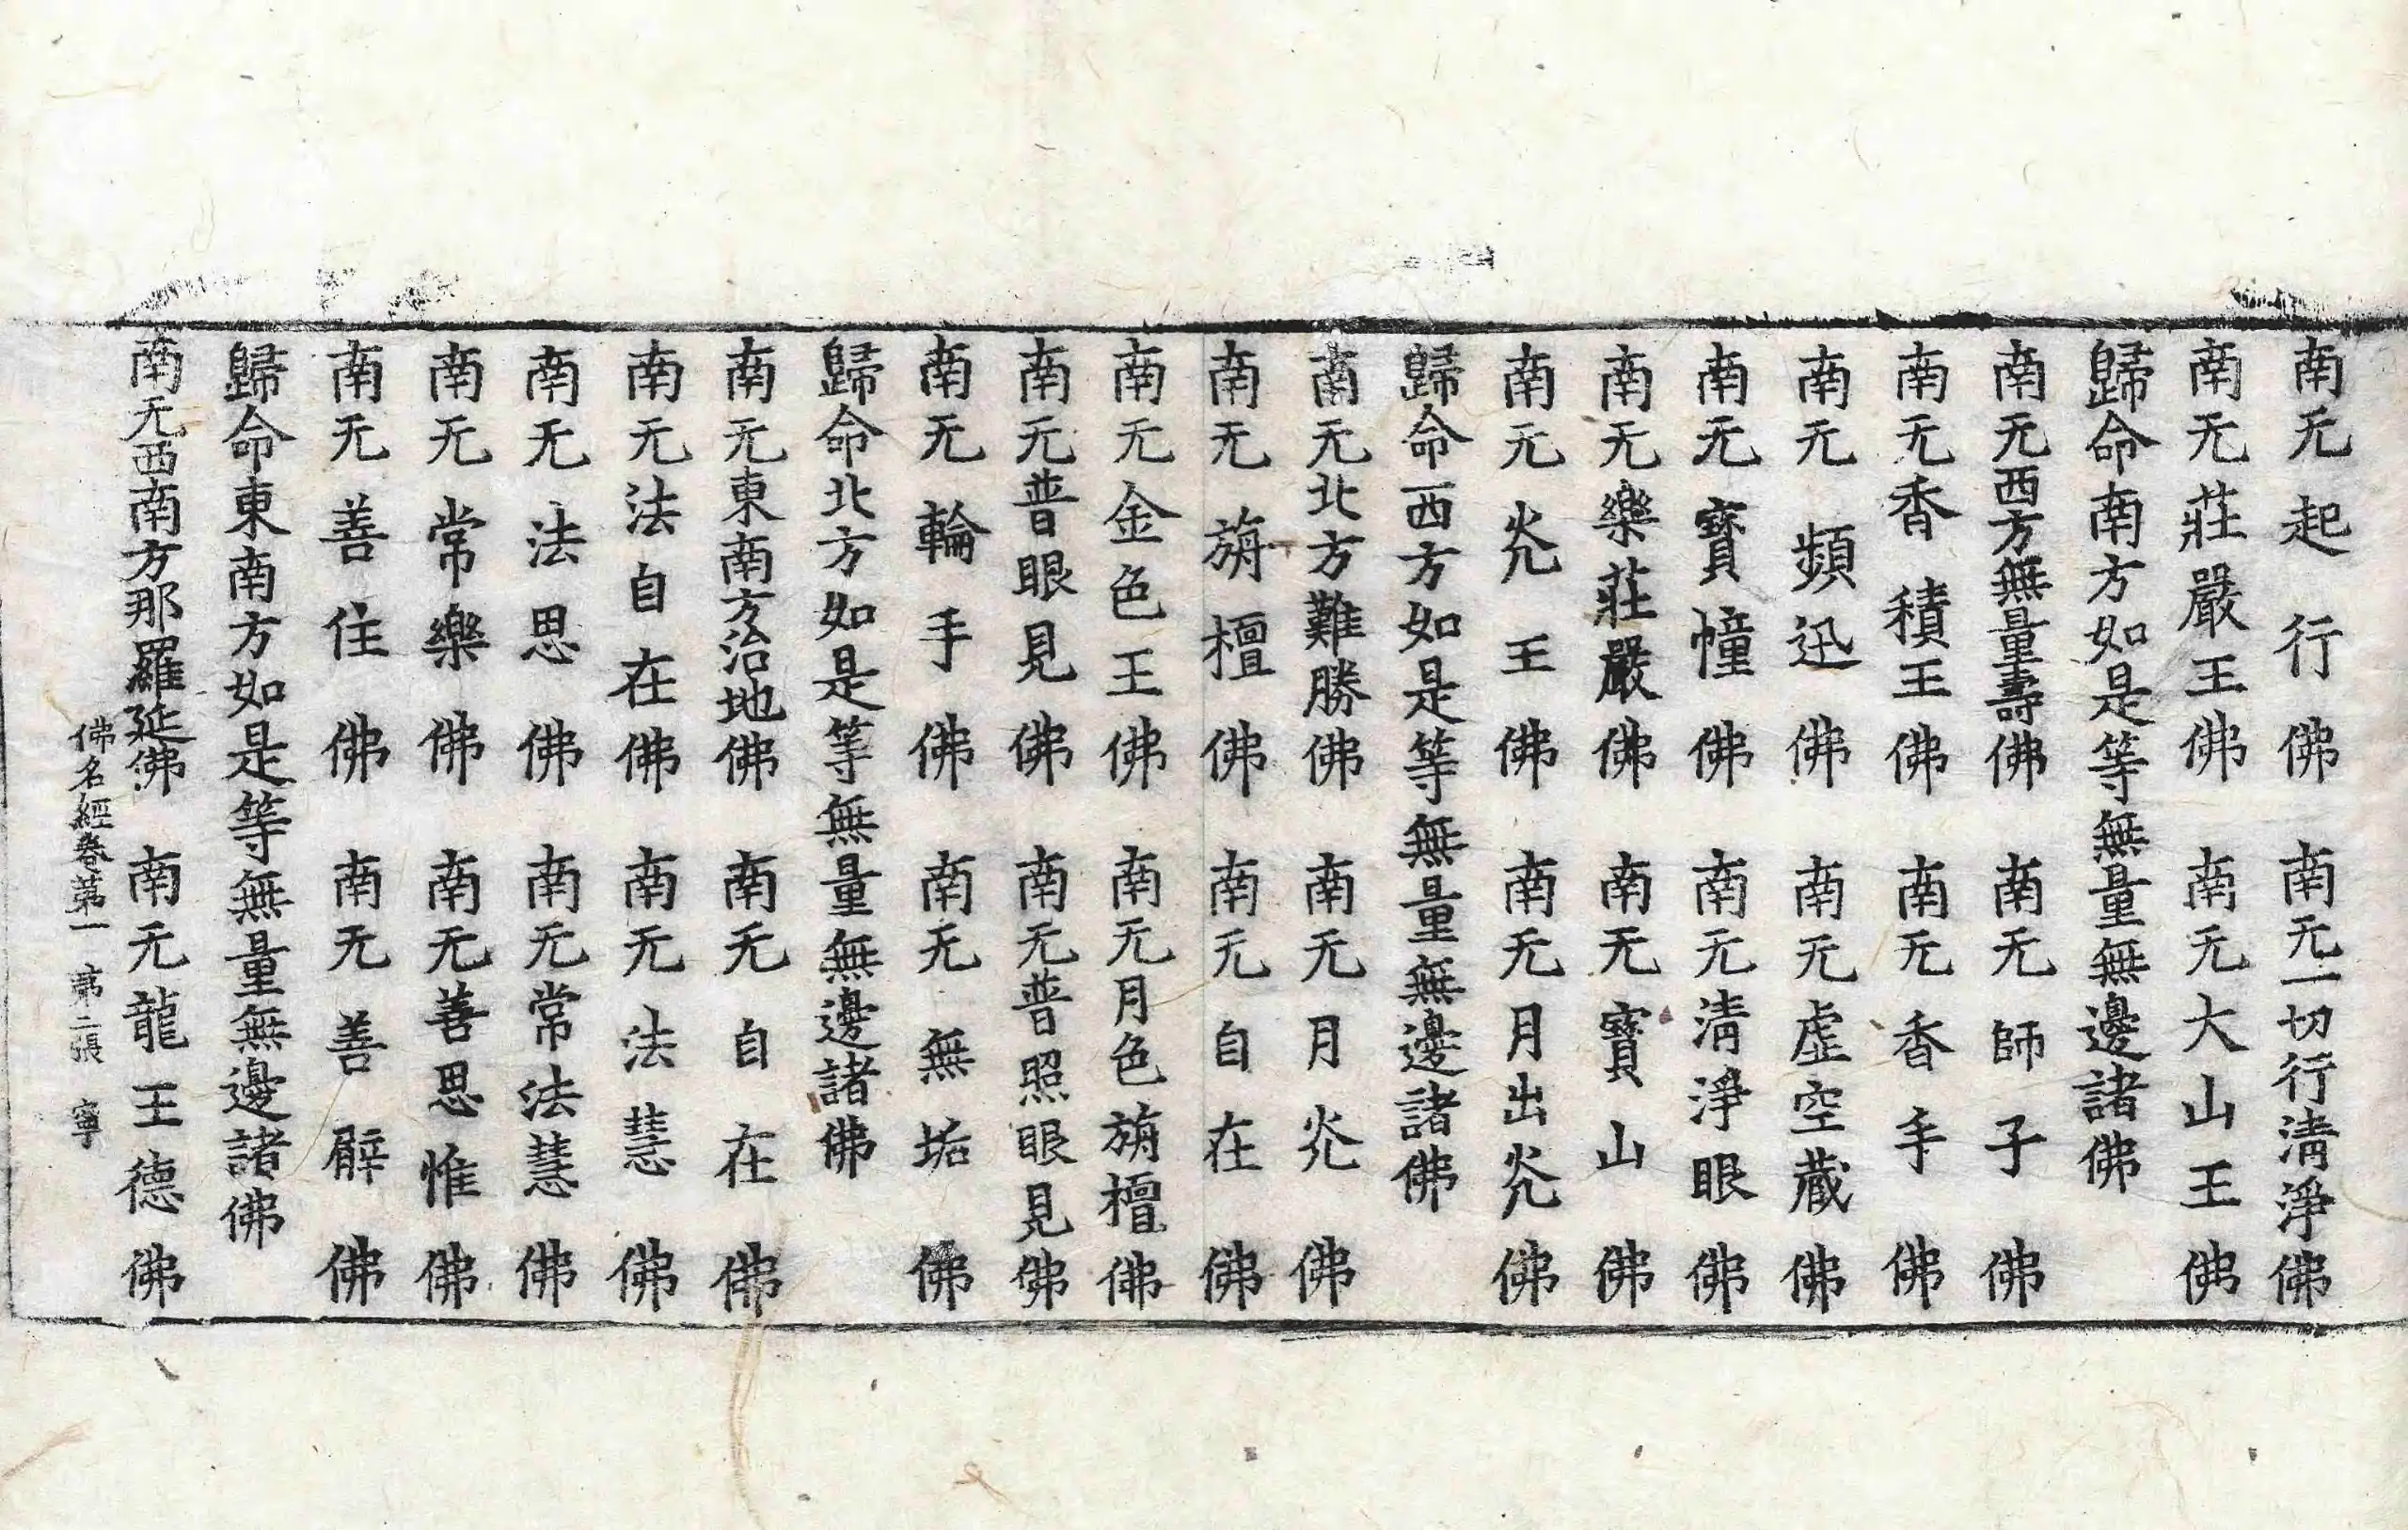 南无起行佛 南无一切行清淨佛
南无莊嚴王佛 南无大山王佛
歸命南方如是等無量無邊諸佛
南无西方無量壽佛 南无師子佛
南无香積王佛 南无香手佛
南无頻迅佛 南无虛空藏佛
南无寶幢佛 南无清淨眼佛
南无樂莊嚴佛 南无寶山佛
南无灮王佛 南无月出灮佛
歸命西方如是等無量無邊諸佛
南无北方難勝佛 南无月灮佛
南无旃檀佛 南无自在佛
南无金色王佛 南无月色旃檀佛
南无普眼見佛 南无普照眼見佛
南无輪手佛 南无無垢佛
歸命北方如是等無量無邊諸佛
南无東南方治地佛 南无自在佛
南无法自在佛 南无法慧佛
南无法思佛 南无常法慧佛
南无常樂佛 南无善思惟佛
南无善住佛 南无善臂佛
歸命東南方如是等無量無邊諸佛
南无西南方那羅延佛 南无龍王德佛
佛名經卷第一 第二張 寧